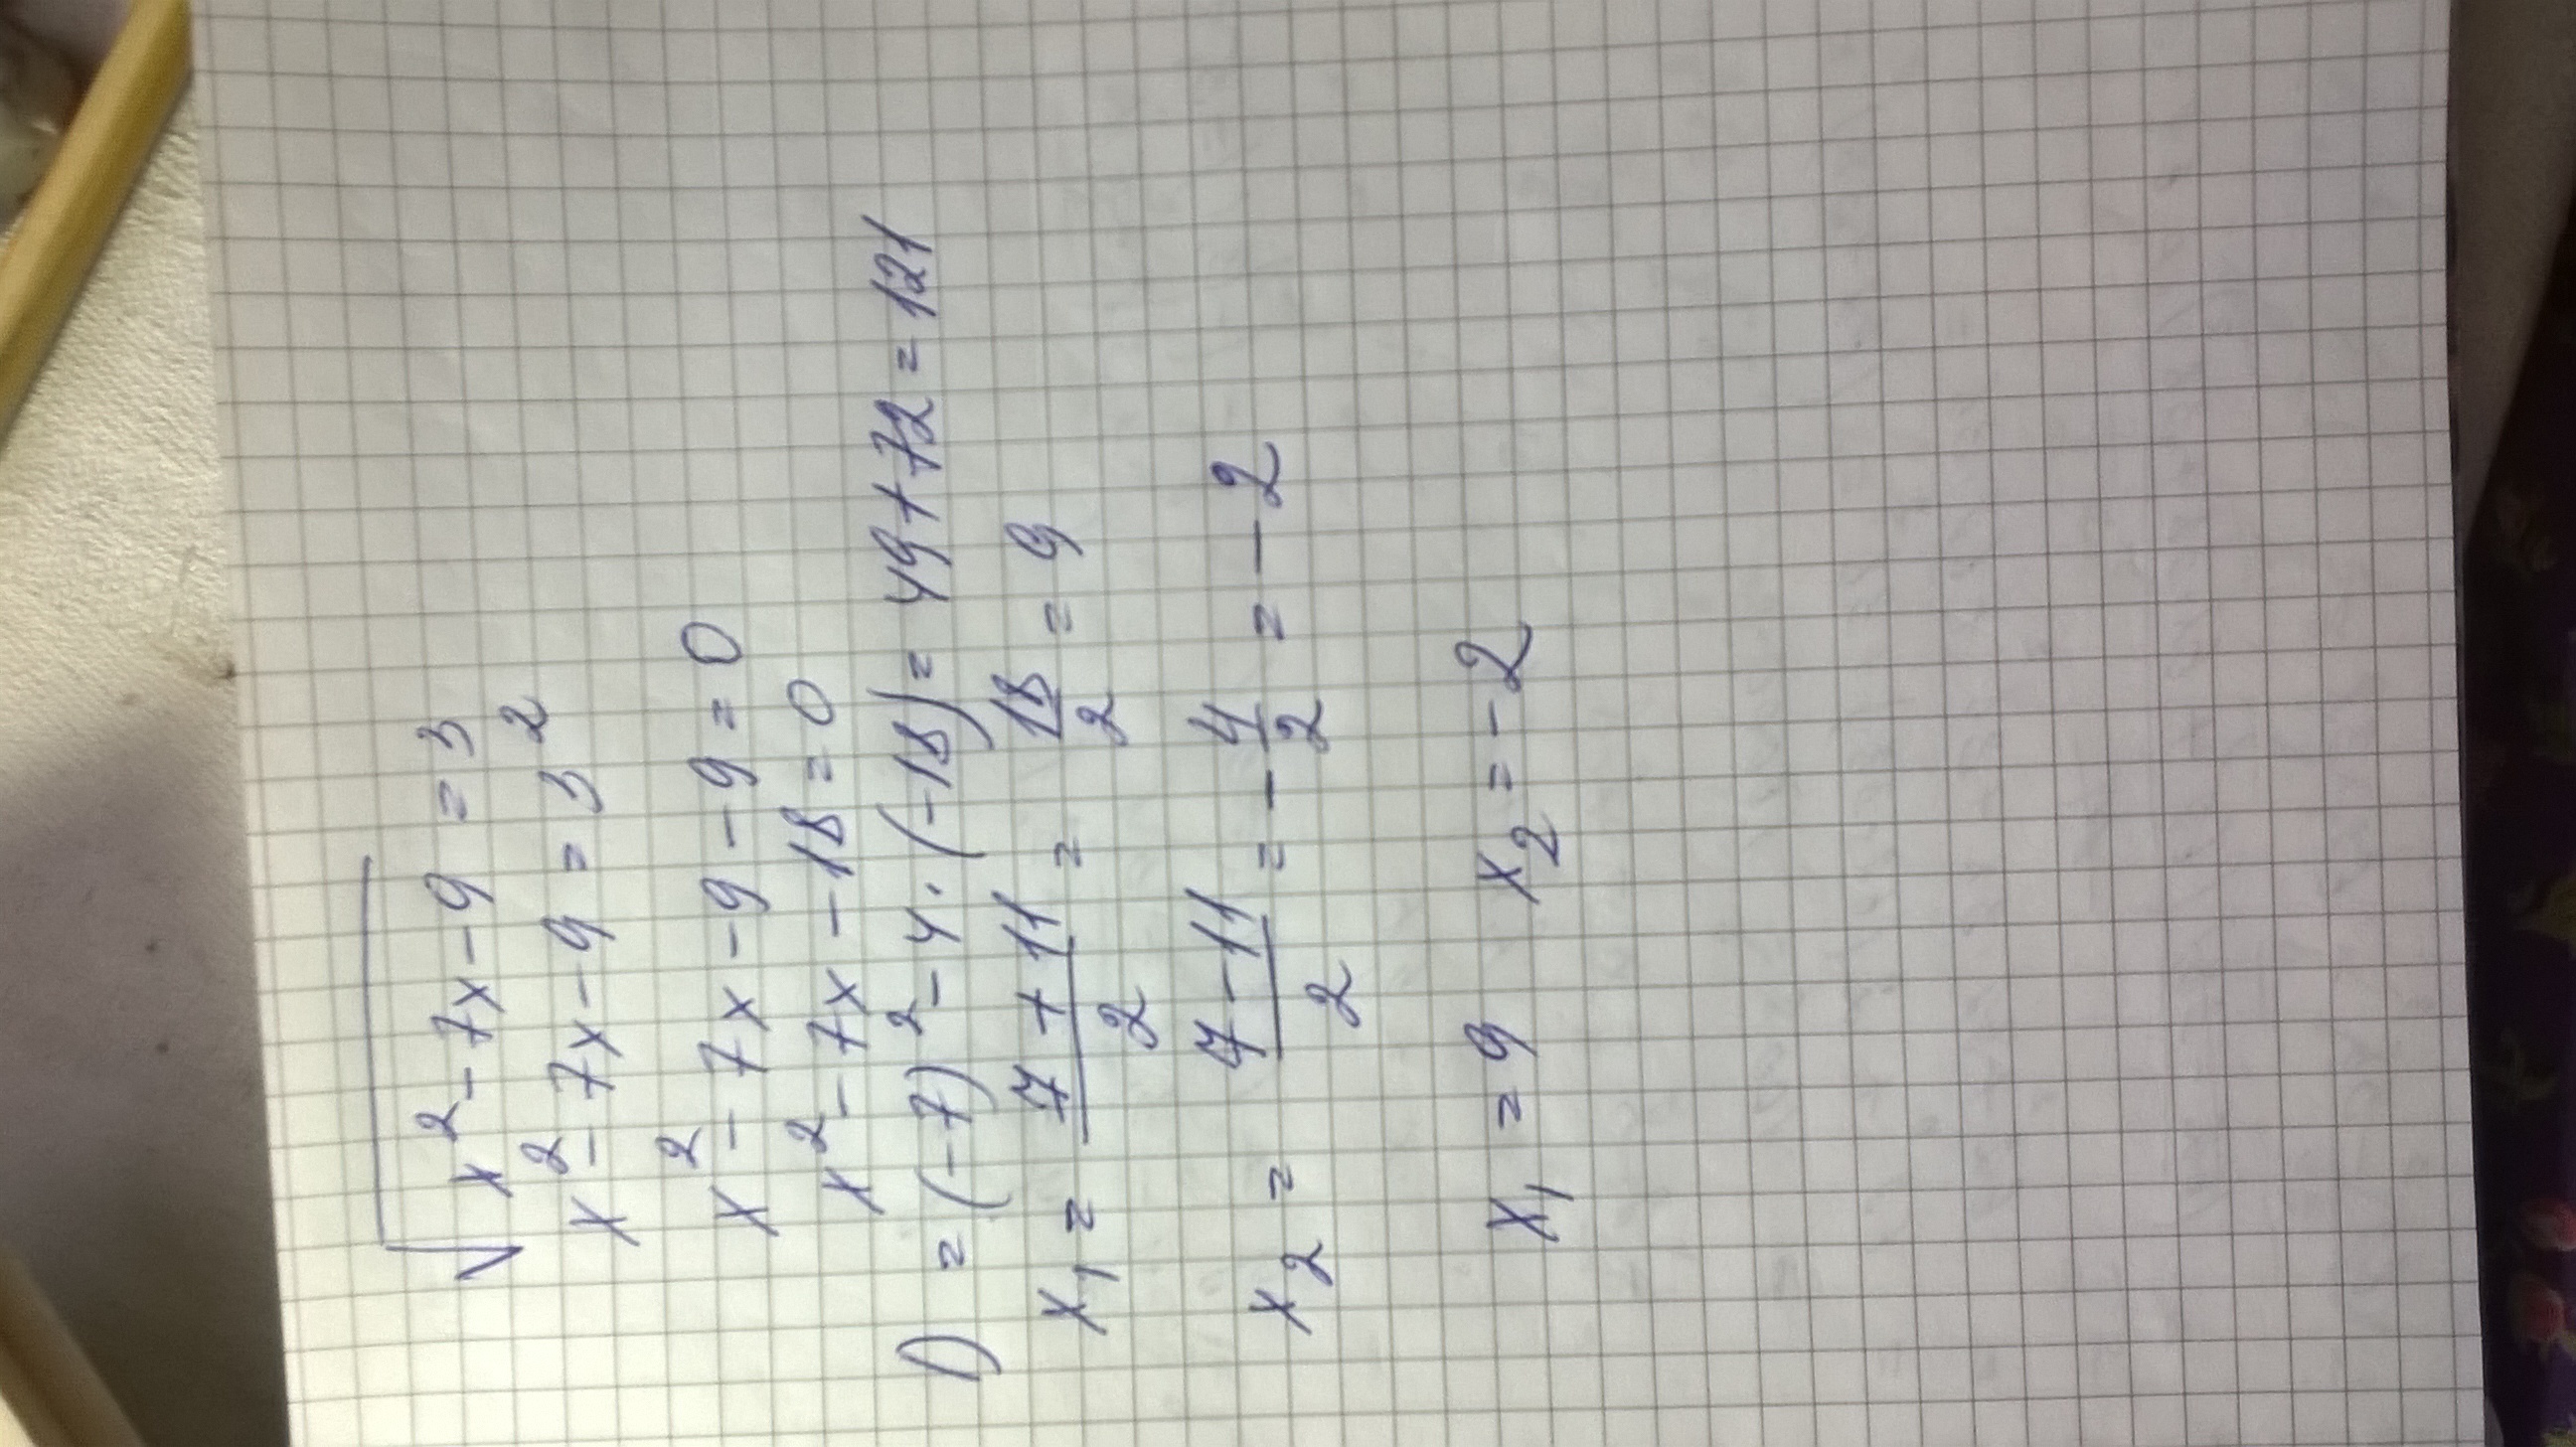 √(x² - 7x - 9) = 3
x² - 7x - 9 = 3²
x² - 7x - 9 - 9 = 0
x² - 7x - 18 = 0
D = (-7)² - 4 · (-18) = 49 + 72 = 121
x₁ = (7 + 11)/2 = 18/2 = 9
x₂ = (7 - 11)/2 = - 4/2 = - 2
x₁ = 9 x₂ = - 2